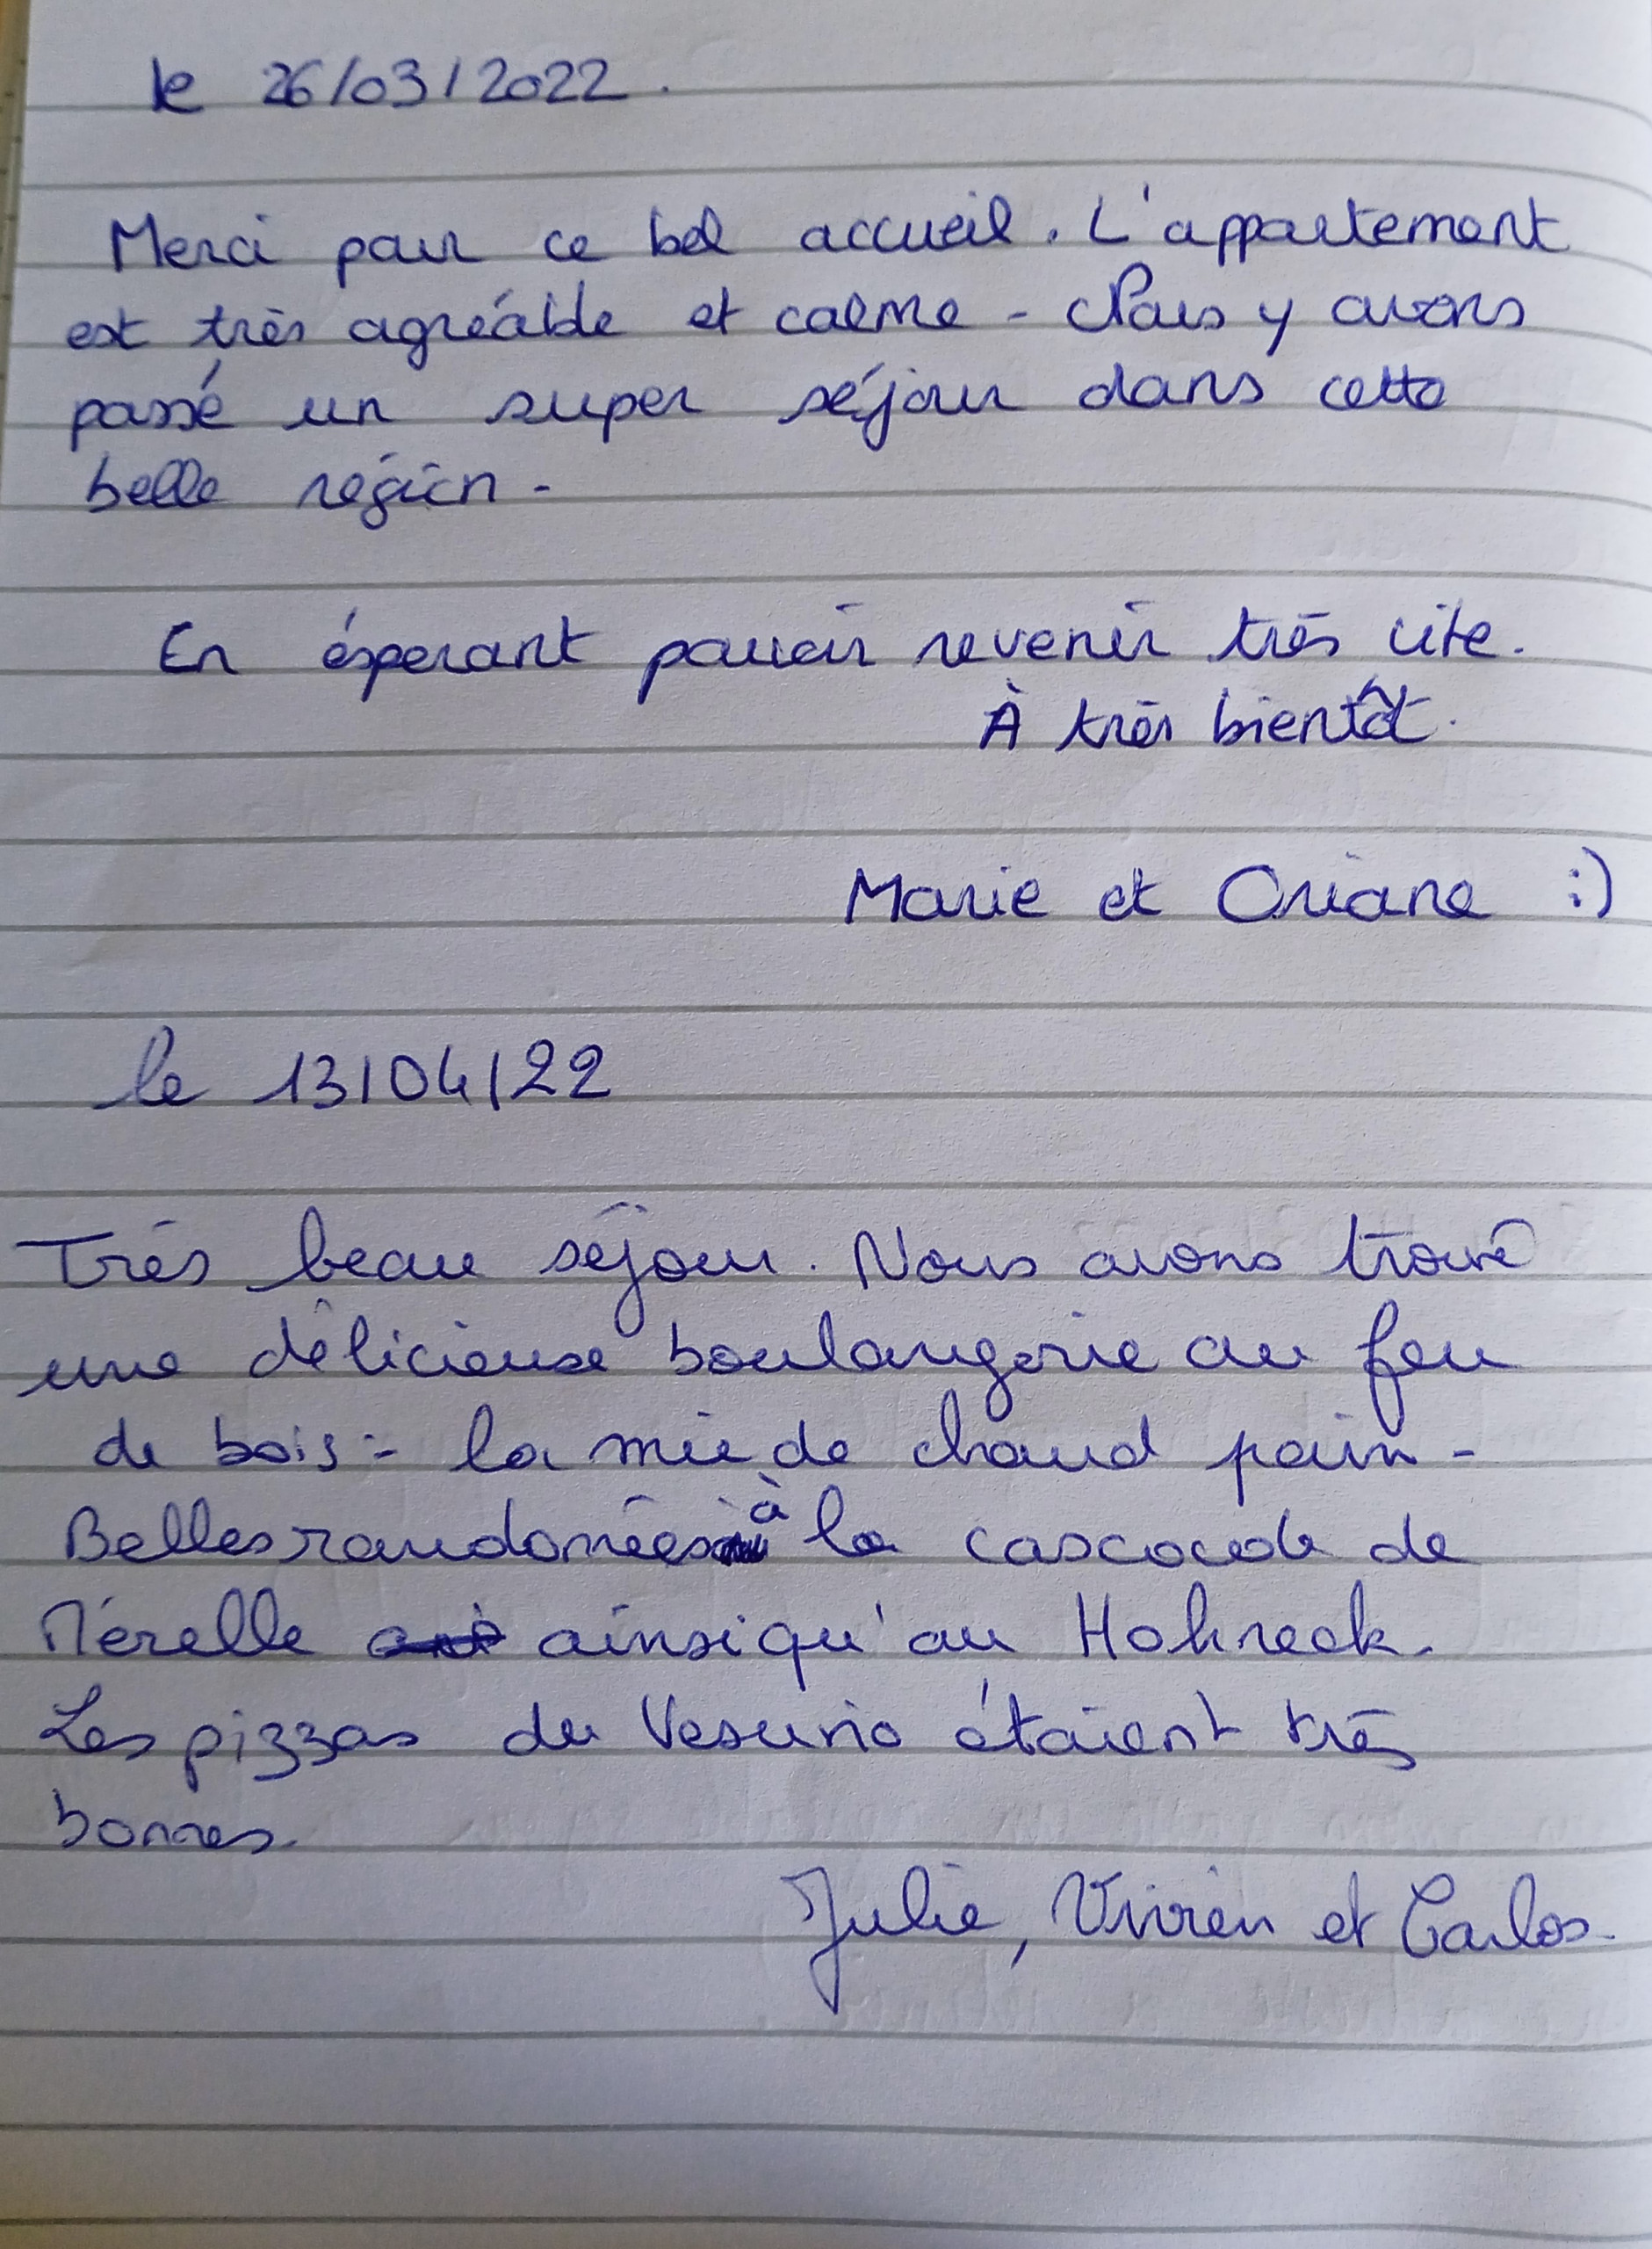 le 26/03/2022.
Merci pour ce bel accueil. L'appartement
est très agréable et calme - Nous y avons
passé un super séjour dans cette
belle région -
En ésperant pouvoir revenir très vite.
À très bientôt.
Marie et Oriane :)
le 13/04/22
Très beau séjour. Nous avons trouvé
une délicieuse boulangerie au feu
de bois : la mie de chaud pain -
Belles randonnées à la cascacade de
Mérelle ainsi qu'au Hohneck.
Les pizzas du Vesuvio étaient très
bonnes.
Julie, Vivien et Carlos.